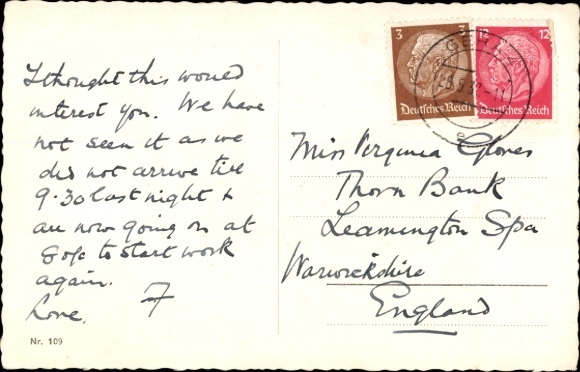 I thought this would
interest you. We have
not seen it as we
did not arrive till
9.30 last night &
are now going on at
8 o/c to start work
again.
Love. F
Nr. 109
3 3
Deutsches Reich
12 12
Deutsches Reich
GERA
e
Miss Virginia Gloves
Thorn Bank
Leamington Spa
Warwickshire
England